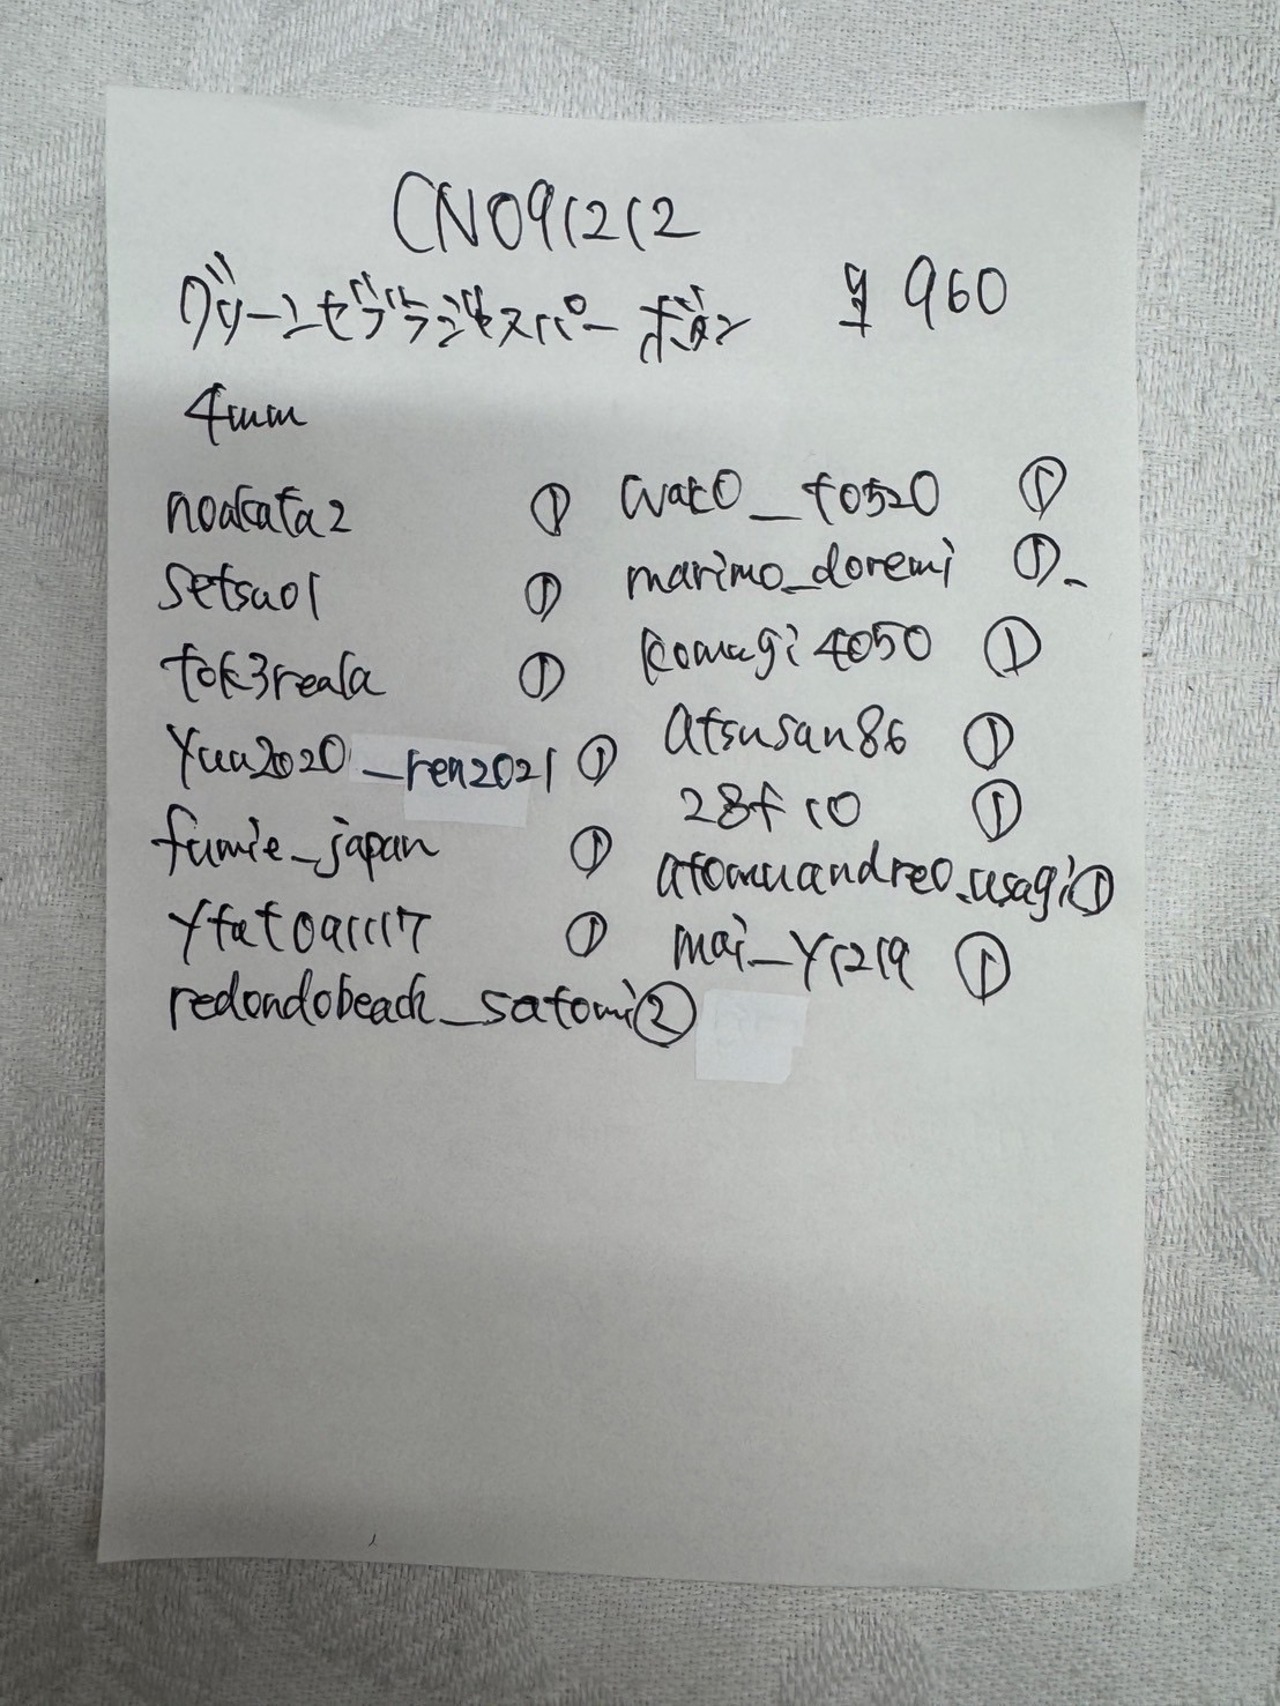 CN091212
グリーンゼブラジャスパー ボタン ¥960
4mm
noakata2 ①
setsuo1 ①
tok3reala ①
Yuu2020_ren2021 ①
fumie_japan ①
Yfatoa1117 ①
redondobeach_satomi ②
wako_t0520 ①
marimo_doremi ①
komugi4050 ①
atsusan86 ①
28f10 ①
atomuandreo.usagi ①
mai_y1219 ①